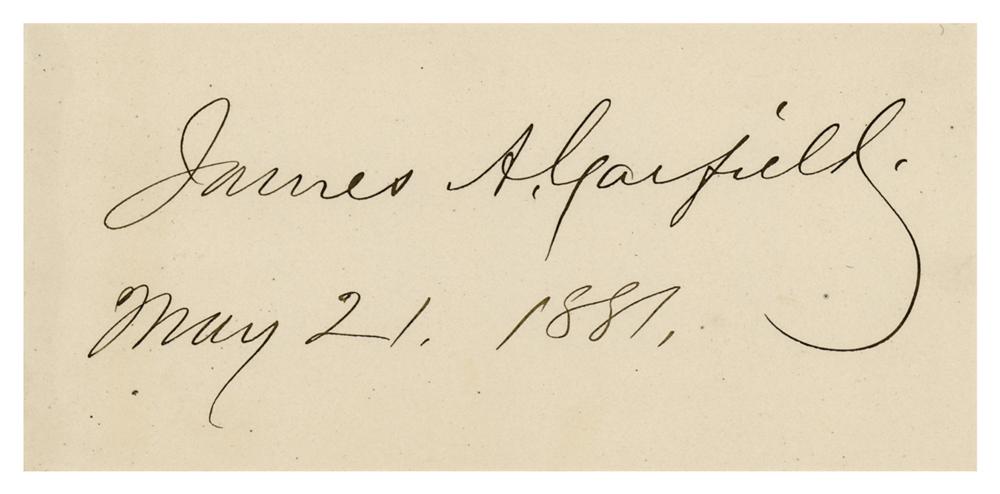 James A. Garfield.
May 21. 1881.